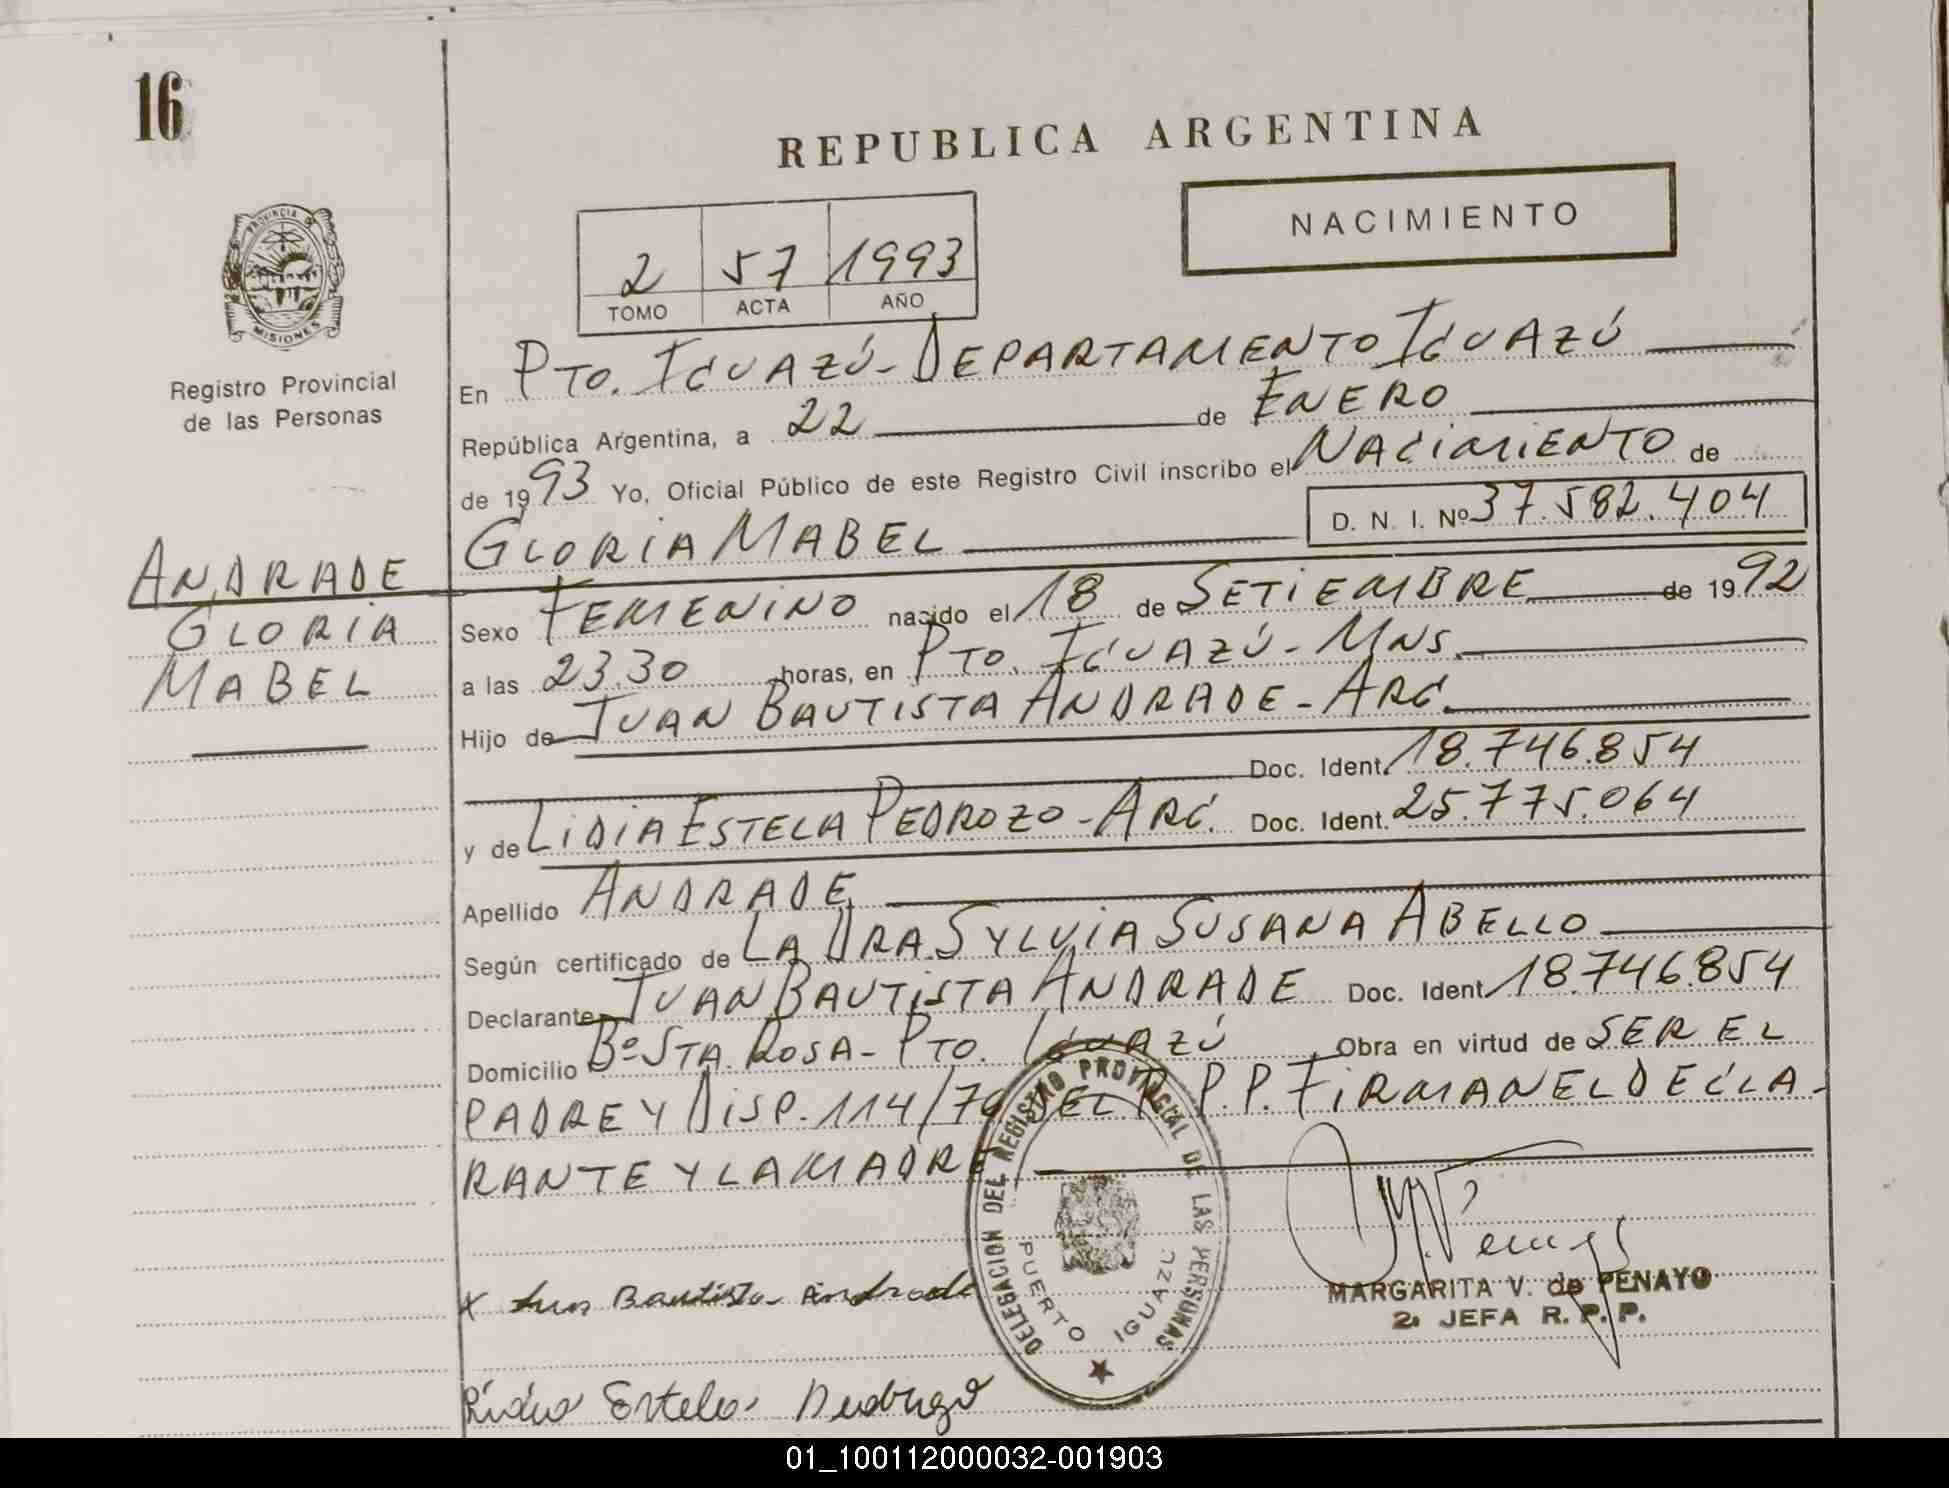 16
REPUBLICA ARGENTINA
NACIMIENTO
2 57 1993
TOMO ACTA AÑO
PROVINCIA DE MISIONES
Registro Provincial
de las Personas
En PTO. IGUAZÚ - DEPARTAMENTO IGUAZÚ
República Argentina, a 22 de ENERO
de 1993 Yo, Oficial Público de este Registro Civil inscribo el NACIMIENTO de
GLORIA MABEL D. N. I. Nº 37.582.404
ANDRADE
GLORIA
MABEL
Sexo FEMENINO nacido el 18 de SETIEMBRE de 1992
a las 23.30 horas, en PTO. IGUAZÚ - MNS.
Hijo de JUAN BAUTISTA ANDRADE - ARG.
Doc. Ident. 18.746.854
y de LIDIA ESTELA PEDROZO - ARG. Doc. Ident. 25.775.064
Apellido ANDRADE
Según certificado de LA DRA. SYLVIA SUSANA ABELLO
Declarante JUAN BAUTISTA ANDRADE Doc. Ident. 18.746.854
Domicilio Bº STA. ROSA - PTO. IGUAZÚ Obra en virtud de SER EL
PADRE Y DISP. 114/ DEL R.P.P. FIRMAN EL DECLA-
RANTE Y LA MADRE
DELEGACION DEL REGISTRO PROVINCIAL DE LAS PERSONAS
PUERTO IGUAZU
x Juan Bautista Andrade
MARGARITA V. de PENAYO
2. JEFA R. P. P.
Lidia Estela Pedrozo
01_100112000032-001903